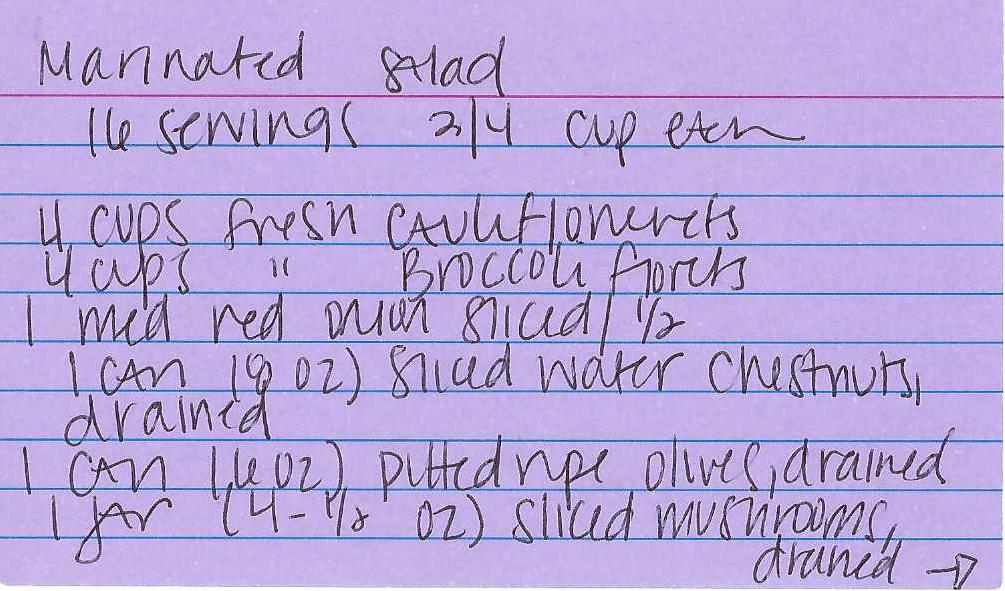 Marinated salad
16 servings 3/4 cup each
4 cups fresh cauliflowerets
4 cups " Broccoli florets
1 med red onion sliced / 1/2
1 can (8 oz) sliced water chestnuts,
drained
1 can (6 oz) pitted ripe olives, drained
1 jar (4-1/2 oz) sliced mushrooms,
drained →